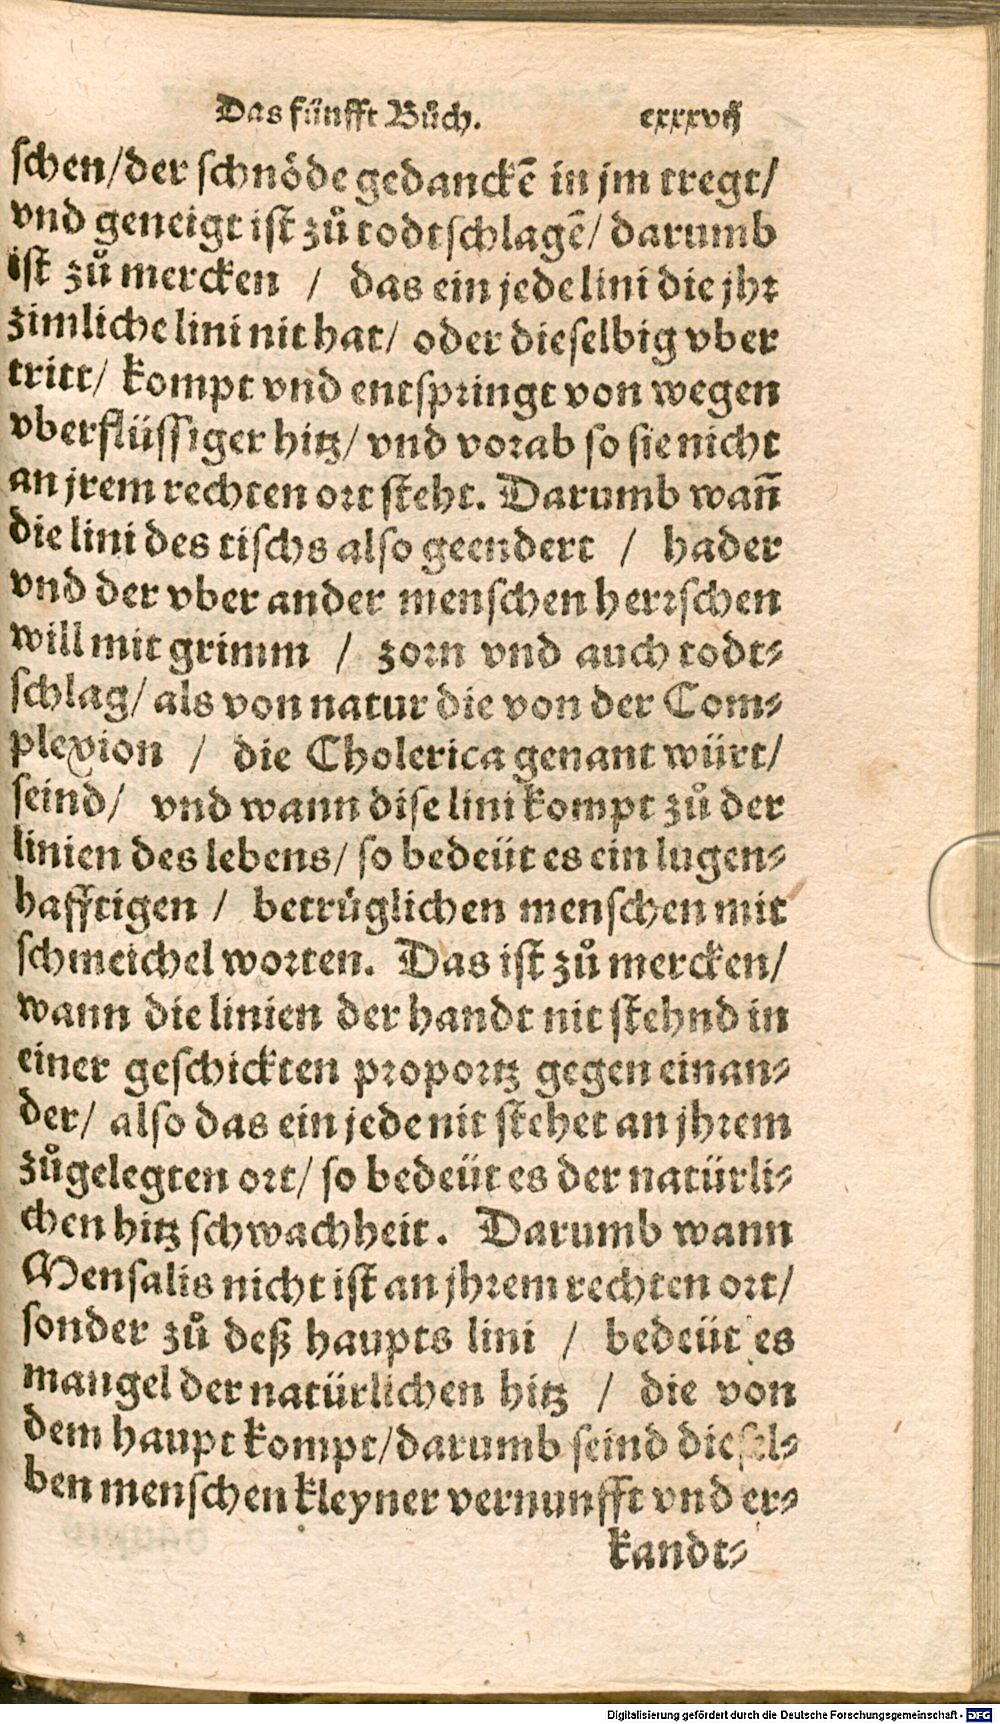 Das fünfft Bůch. cxxxvij
schen/der schnöde gedanckẽ in jm tregt/
vnd geneigt ist zů todtschlagẽ/ darumb
ist zů mercken / das ein jede lini die jhr
zimliche lini nit hat/ oder dieselbig vber
tritt/ kompt vnd entspringt von wegen
vberflüssiger hitz/ vnd vorab so sie nicht
an jrem rechten ort steht. Darumb wañ
die lini des tischs also geendert / hader
vnd der vber ander menschen herrschen
will mit grimm / zorn vnd auch todt⸗
schlag/ als von natur die von der Com⸗
plexion / die Cholerica genant würt/
seind/ vnd wann dise lini kompt zů der
linien des lebens/ so bedeüt es ein lugen⸗
hafftigen / betrüglichen menschen mit
schmeichel worten. Das ist zů mercken/
wann die linien der handt nit stehnd in
einer geschickten proportz gegen einan⸗
der/ also das ein jede nit stehet an jhrem
zůgelegten ort/ so bedeüt es der natürli⸗
chen hitz schwachheit. Darumb wann
Mensalis nicht ist an jhrem rechten ort/
sonder zů deß haupts lini / bedeüt es
mangel der natürlichen hitz / die von
dem haupt kompt/darumb seind diesel⸗
ben menschen kleyner vernunfft vnd er⸗
kandt⸗
Digitalisierung gefördert durch die Deutsche Forschungsgemeinschaft - DFG